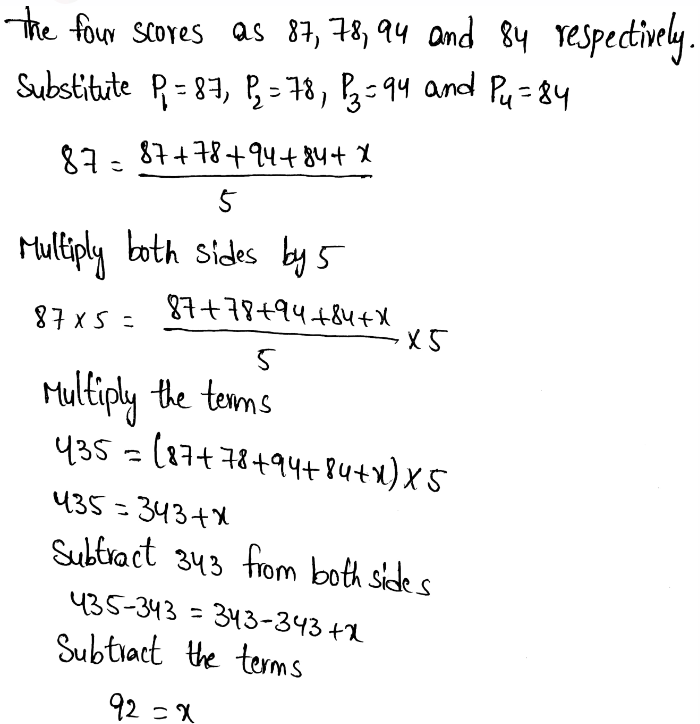 The four scores as 87, 78, 94 and 84 respectively.
Substitute P₁ = 87, P₂ = 78, P₃ = 94 and P₄ = 84
87 = (87 + 78 + 94 + 84 + x) / 5
Multiply both sides by 5
87 × 5 = (87 + 78 + 94 + 84 + x) / 5 × 5
Multiply the terms
435 = (87 + 78 + 94 + 84 + x) × 5
435 = 343 + x
Subtract 343 from both sides
435 - 343 = 343 - 343 + x
Subtract the terms
92 = x